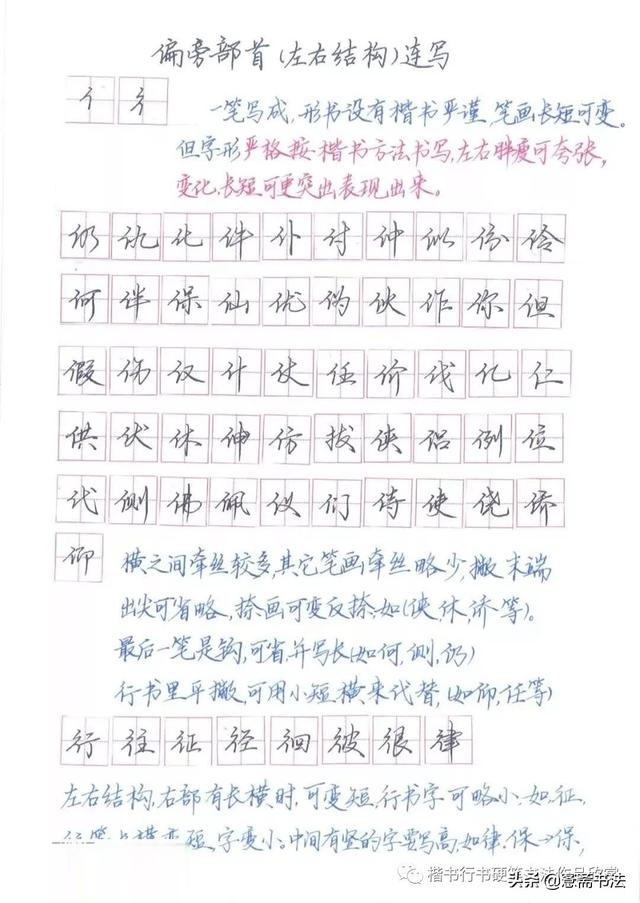 偏旁部首(左右结构)连写
亻 彳
一笔写成,形书没有楷书严谨,笔画长短可变。
但字形严格按楷书方法书写,左右胖瘦可夸张,
变化,长短可更突出表现出来。
仍 仇 化 件 仆 付 仲 似 份 伶
何 伴 保 仙 优 伪 伙 作 你 但
假 伤 仅 什 仗 任 价 伐 亿 仁
供 伏 休 伸 仿 拔 侠 侣 例 位
代 侧 佛 佩 仪 们 侍 使 侥 侨
仰 横之间牵丝较多,其它笔画牵丝略少,撇末端
出尖可省略,捺画可变反捺,如(侠,休,侨等)。
最后一笔是钩,可省,并写长(如何,侧,仍)
行书里平撇,可用小短横来代替,(如仰,任等)
行 往 征 径 徊 彼 很 律
左右结构,右部有长横时,可变短,行书字可略小.如,征,
短,字变小。中间有竖的字要写高,如律,保→保,
楷书行书硬笔书法作品欣赏
头条@慧斋书法